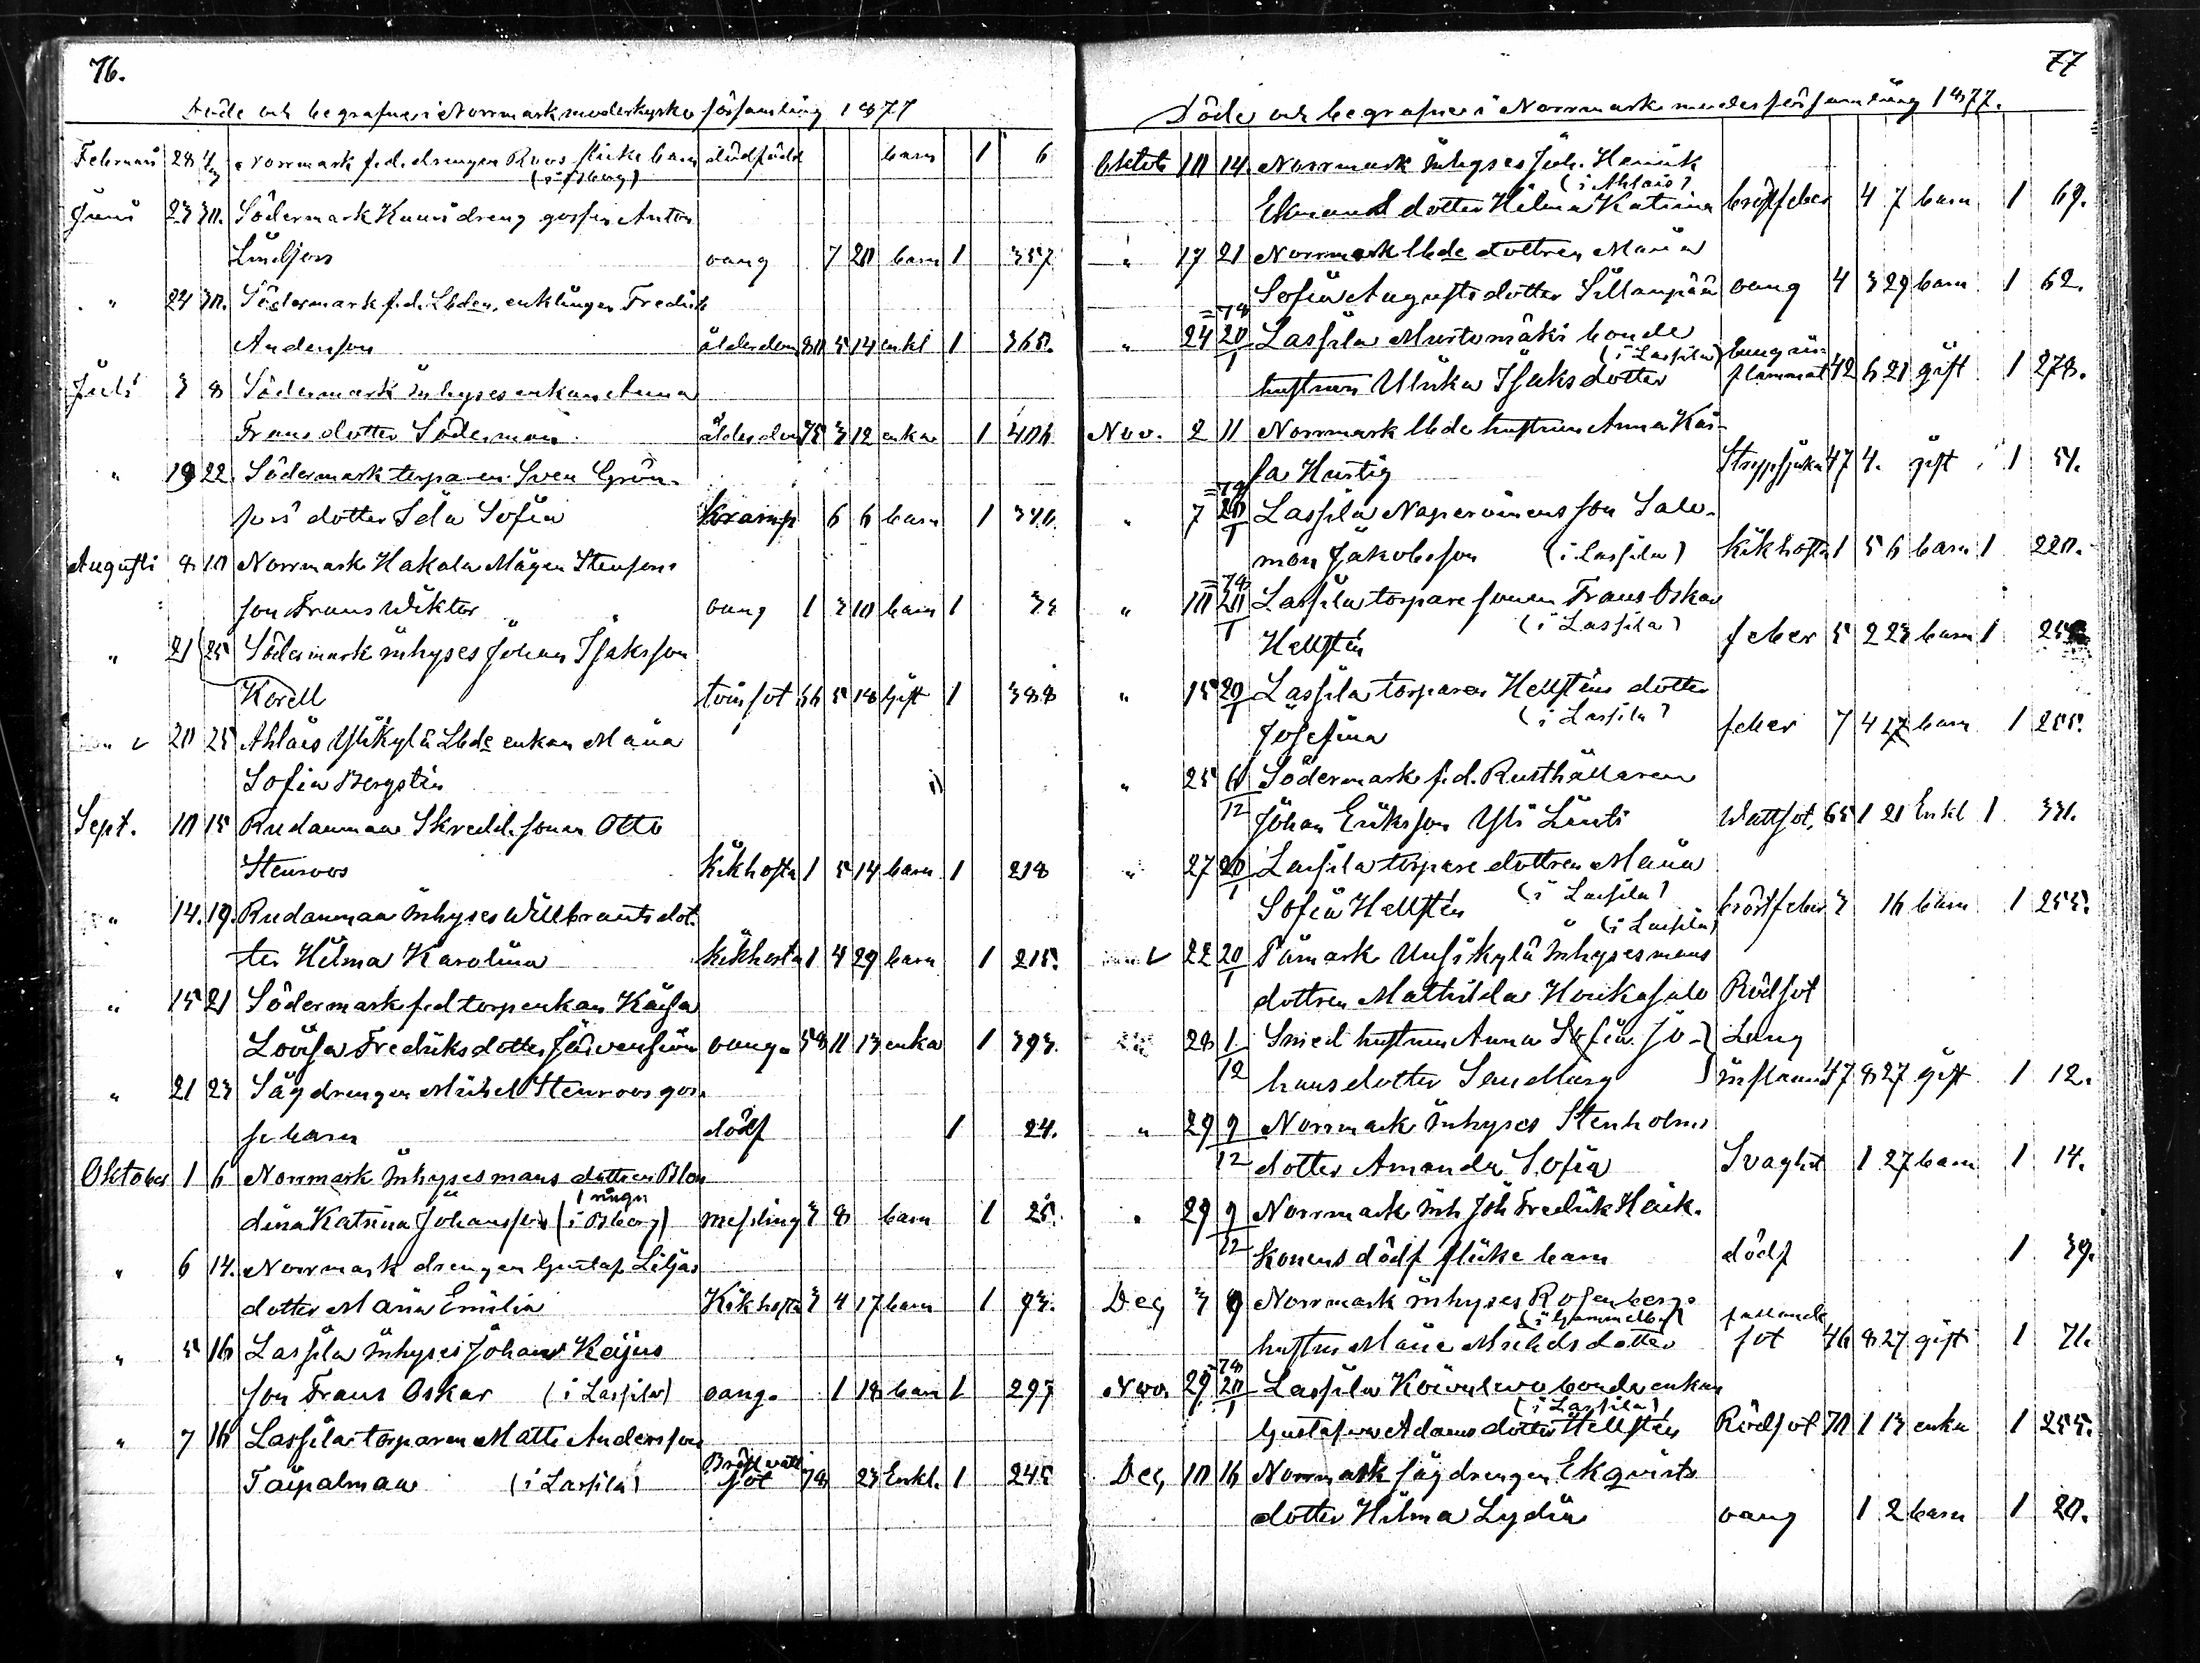 76.
Döde och begrafne i Norrmark moderkyrko församling 1877
Februari 28 4/3 Norrmark f.d. drengen Roos flicke barn dödfödd barn 1 6
(i Björneborg)
Juni 23 30. Södermark Kuuri dreng gossen Anton
Lindfors oang 7 20 barn 1 357
" 24 30. Södermark f.d. Lbden, enklingen Fredrik
Anderson ålderdom 80 5 14 enkl 1 365.
Juli 3 8 Södermark inhyses enkan Anna
Frans dotter Söderman ålderdom 75 3 12 enka 1 406
" 19 22. Södermark torparen Sven Grön-
fors dotter Ida Sofia Kramp 6 6 barn 1 340.
Augusti 8 10 Norrmark Hakala Mågen Stenfors
son Frans Wiktor oang 1 3 10 barn 1 33
" 21 25 Södermark inhyses Johan Isaksson
Korell tvinsot 36 5 18 Gift 1 388
" 20 25 Ahlais Ylikylä Lbde enkan Maria
Sofia Bergstén
Sept. 10 15 Rudanmaa Skredd. sonen Otto
Stenroos Kikhosta 1 5 14 barn 1 218
" 14. 19. Rudanmaa inhyses Willbrants dot
ter Hilma Karolina Kikhosta 1 4 29 barn 1 215.
" 15 21 Södermark f.d torpenkan Kaisa
Lovisa Fredriks dotter Järvensivu oang. 58 11 13 enka 1 393.
" 21 23 Sågdrengen Mikel Stenroos gos-
se barn dödf 1 24.
Oktober 1 6 Norrmark inhysesmans dottren Blon
dina Katrina Johansson (i Bberg) messling 3 8 barn 1 25.
" 6 14. Norrmark drengen Gustaf Liljas
dotter Maria Emilia Kikhosta 3 4 17 barn 1 93.
" 5 16 Lassila inhyses Johan Keijus
son Frans Oskar (i Lassila) oang. 1 18 barn 1 297
" 7 16 Lassila torparen Matts Andersson
Taipalmaa (i Lassila) Bröst vatt sot 78 23 Enkl. 1 245
77
Döde och begrafne i Norrmark moderförsamling 1877.
Oktob 10 14. Norrmark inhyses Joh. Henrik
(i Ahlais)
Ekmans dotter Hilma Katrina bröstfeber 4 7 barn 1 69.
" 17 21 Norrmark Lbde dottren Maria
Sofia Augusts dotter Sillanpää oang 4 3 29 barn 1 62.
" 24 20/1 =78 Lassila Murtomäki bonde
(i Lassila)
hustrun Ulrika Isaksdotter lung in- flammat 42 6 21 gift 1 278.
Nov. 2 11 Norrmark Lbde hustrun Anna Kai-
sa Hurtig Strypsjuka 47 4. gift 1 51.
" 7 20/1 =78 Lassila Napervinens son Salo-
mon Jakobsson (i Lassila) Kikhosta 1 5 6 barn 1 220.
" 10 20/1 =78 Lassila torpare sonen Frans Oskar
(i Lassila)
Hellstén feber 5 2 23 barn 1
" 15 20/1 Lassila torparen Hellsténs dotter
(i Lassila)
Josefina feber 7 4 17 barn 1 255.
" 25 6/12 Södermark f.d. Rusthållaren
Johan Eriksson Yli Linti Wattsot, 65 1 21 Enkl 1 331.
" 27 20/1 Lassila torpare dottren Maria
(i Lassila)
Sofia Hellstén bröstfeber 3 16 barn 1 255.
" (i Lassila)
22 20/1 Påmark Uusikylä inhysesmans
dottren Mathilda Honkasalo Rödsot
28 1/12 Smed hustrun Anna Sofia Jo- Lung
hans dotter Sandberg inflamat 47 8 27 gift 1 12.
" 29 9/12 Norrmark inhyses Stenholms
dotter Amanda Sofia Svaghet 1 27 barn 1 14.
" 29 9/12 Norrmark inh Joh Fredrik Heik-
konens dödf flicke barn dödf 1 39.
Dec 3 9 Norrmark inhyses Rosenbergs
(i Gammelby)
hustru Maria Mickelsdotter fallande sot 46 8 27 gift 1 71.
Nov. 29. 20/1 =78 Lassila Koivuluoma bonde enkan
(i Lassila)
Gustafva Adams dotter Hellstén Rödsot 70 1 13 enka 1 255.
Dec 10 16 Norrmark sågdrengen Ekqvists
dotter Hilma Lydia oang 1 2 barn 1 20.